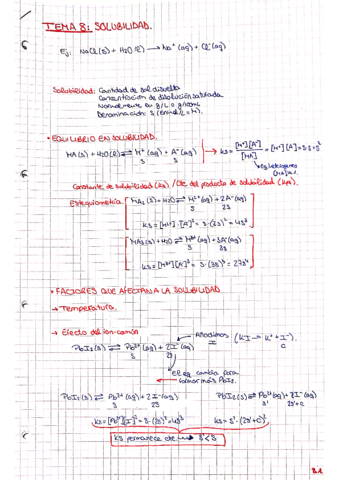 TEMA 8: SOLUBILIDAD.
Ej: NaCl(s) + H2O(l) → Na+(aq) + Cl-(aq)
Solubilidad: Cantidad de sal disuelta
Concentración de disolución saturada
Normalmente en g/L o g/100mL
Denominación: s (en mol/L = M).
• EQUILIBRIO EN SOLUBILIDAD.
MA(s) + H2O(l) ⇌ M+(aq) + A-(aq) → ks = [M+][A-]/[MA] = [M+][A-] = s·s = s²
s s
Constante de solubilidad (ks) / Cte del producto de solubilidad (kps)
Estequiometría: MA2(s) + H2O ⇌ M2+(aq) + 2A-(aq)
s 2s
ks = [M2+]·[A-]² = s·(2s)² = 4s³
MA3(s) + H2O ⇌ M3+(aq) + 3A-(aq)
s 3s
ks = [M3+][A-]³ = s·(3s)³ = 27s⁴
• FACTORES QUE AFECTAN A LA SOLUBILIDAD
→ Temperatura.
→ Efecto del ion común
Añadimos I- (KI → K+ + I-)
c
PbI2(s) ⇌ Pb2+(aq) + 2I-(aq)
s 2s
El eq. cambia para
formar más PbI2.
PbI2(s) ⇌ Pb2+(aq) + 2I-(aq) PbI2(s) ⇌ Pb2+(aq) + 2I-(aq)
s 2s s' 2s'+c
ks = [Pb2+][I-]² = s·(2s)² = 4s³ ks = s'·(2s'+c)²
ks permanece cte → s' < s
8.1